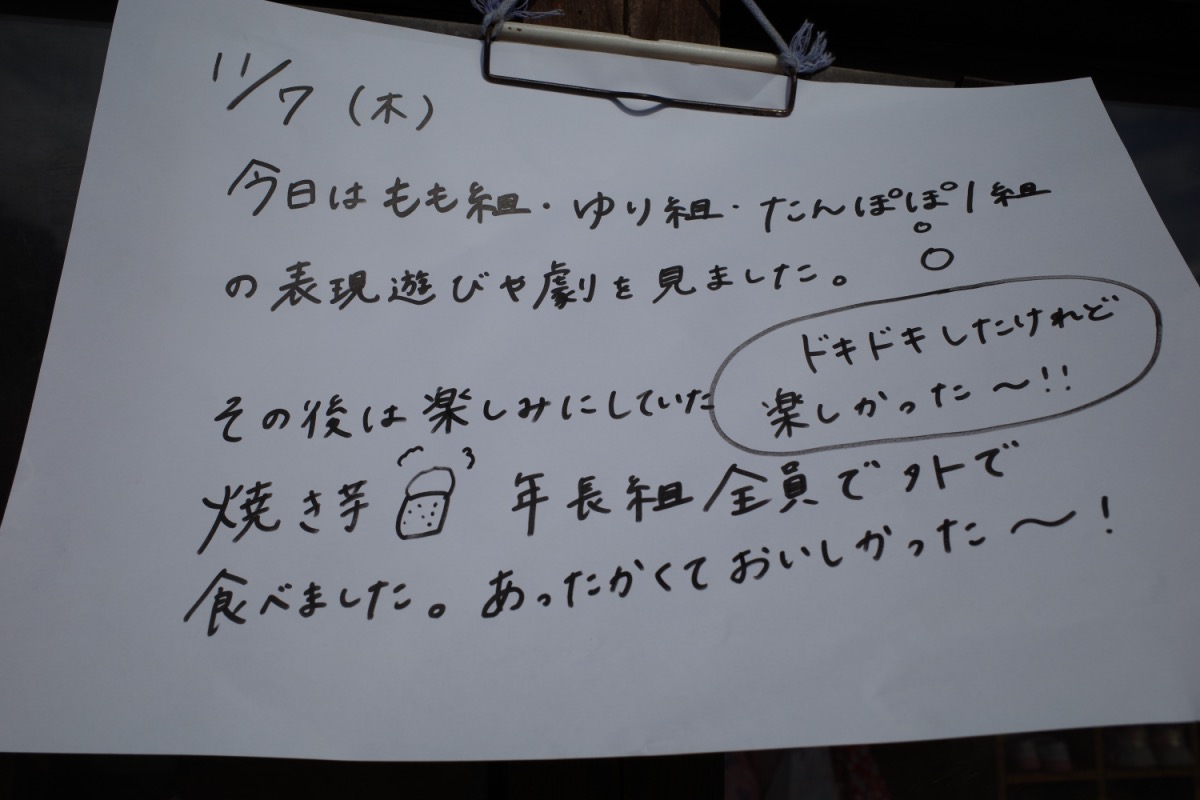 11/7（木）
今日はもも組・ゆり組・たんぽぽ1組
の表現遊びや劇を見ました。
ドキドキしたけれど
楽しかった〜!!
その後は楽しみにしていた
焼き芋 年長組全員で外で
食べました。あったかくておいしかった〜!